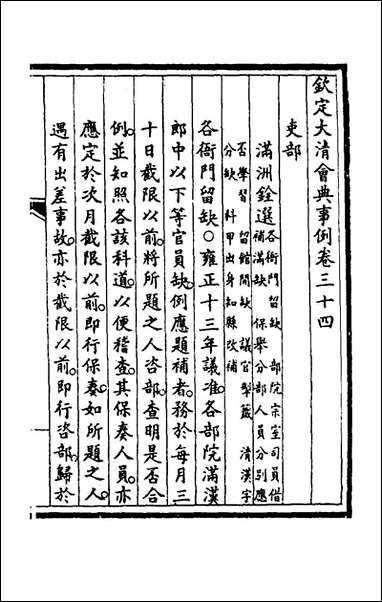 欽定大清會典事例卷三十四
吏部
滿洲銓選各衙門留缺 部院宗室司員借
補滿缺 保舉分部人員分別應
否學習 留館間缺 議官掣籤 清漢字
分缺 科甲出身知縣改補
各衙門留缺○雍正十三年議准各部院滿漢
郎中以下等官員缺例應題補者務於每月三
十日截限以前將所題之人咨部查明是否合
例並知照各該科道以便稽查其保奏人員亦
應定於次月截限以前即行保奏如所題之人
遇有出差事故亦於截限以前即行咨部歸於